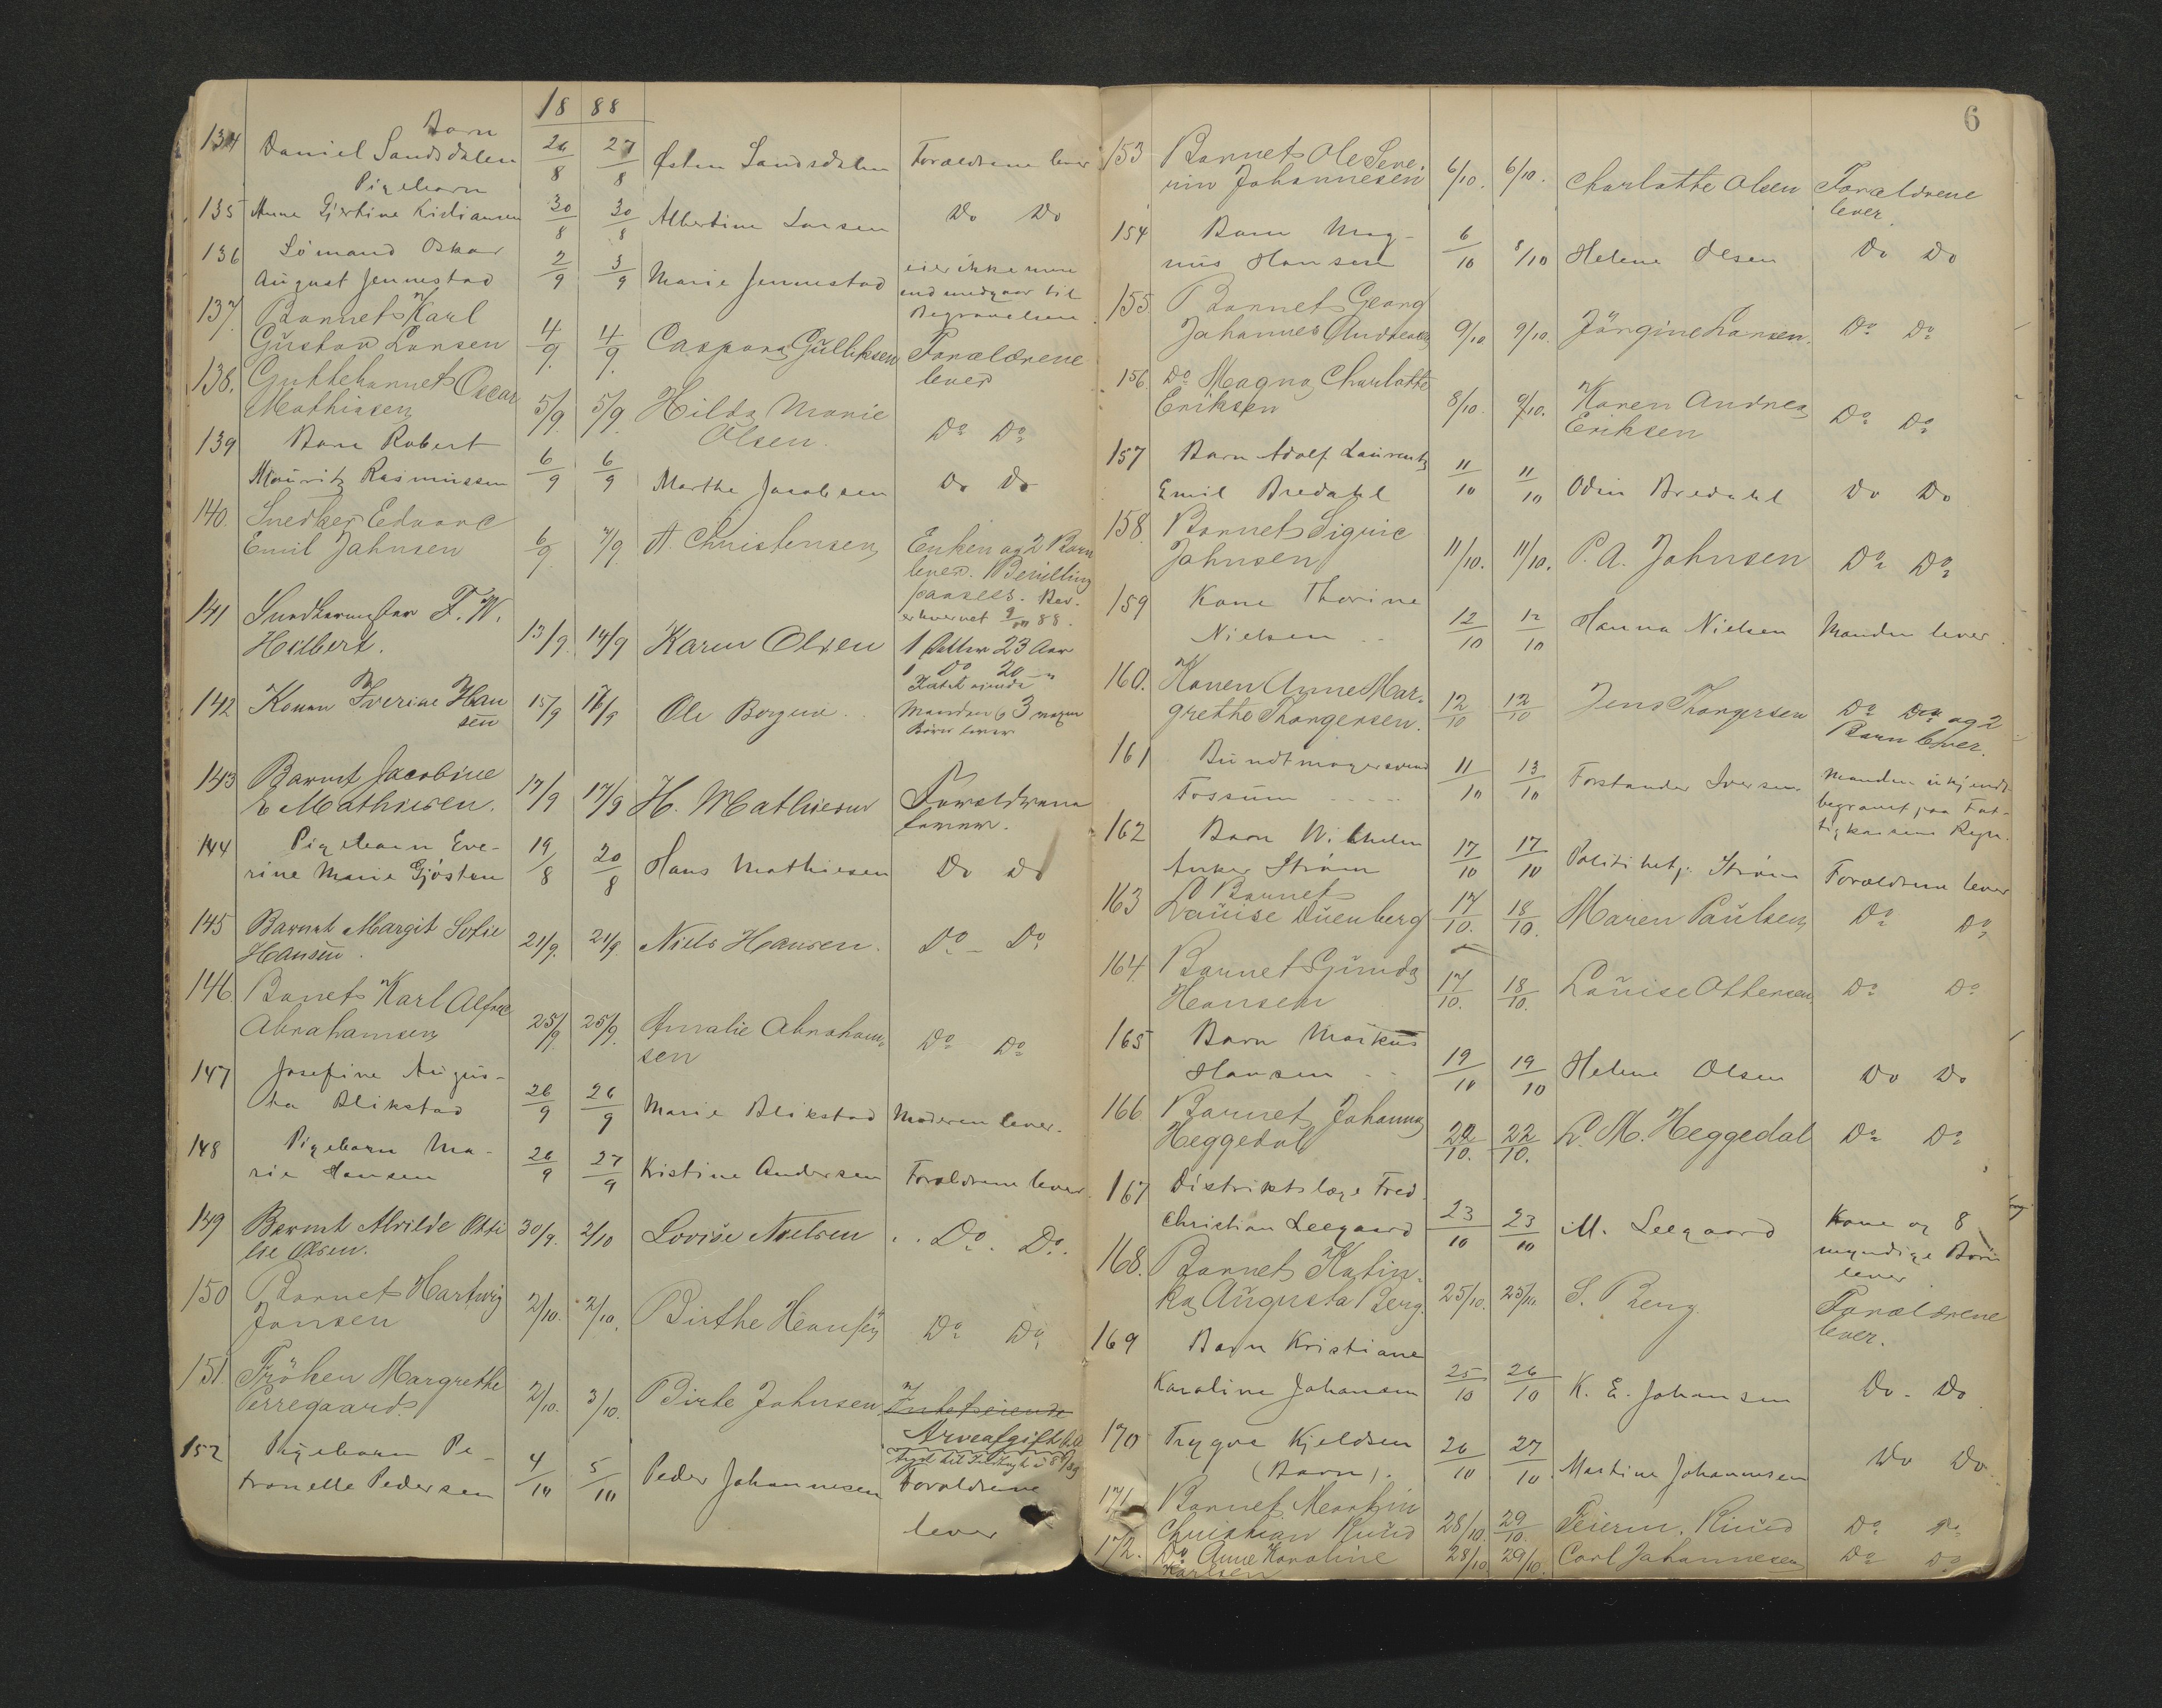 18 88
134 Barn Daniel Sandsdalen 26/8 27/8 Østen Sandsdalen Forældrene lever
Pigebarn
135 Anne Gjertine Kistiansen 30/8 30/8 Albertine Larsen Do Do
136 Sömand Oskar
August Jennestad 2/9 3/9 Marie Jennestad eier ikke mere
end medgaar til
Begravelsen
137. Barnet Karl
Gustav Larsen 4/9. 4/9. Caspara Gulliksen Forældrene
lever
138. Guttebarnet Oscar
Mathiasen 5/9. 5/9. Hilda Marie
Olsen. Do Do
139 Barn Robert
Mauritz Rasmussen 6/9 6/9 Marthe Jacobsen Do Do
140. Snedker Edvard
Emil Jahnsen 6/9. 7/9. A. Christensen Enken og 2 Barn
lever. Bevilling
paasees. Bev.
erhvervet 88.
141 F. W.
Hilbert. 13/9. 14/9 Karen Olsen 1 Datter 23 Aar
1 Do 20 "
Intet eiende
142 Konen Iverine Han
sen 15/9 Ole Borgen. Manden & 3 voxne
Børn lever
143 Barnet Jacobine
Mathiesen. 17/9 17/9 H. Mathiesen Forældrene
lever.
144 Pigebarn Eve-
rine Marie Gjøsten 19/8 20/8 Hans Mathiesen Do Do
145 Barnet Margit Sofie
Hansen. 21/9. 21/9. Niels Hansen. Do - Do
146. Banet Karl Alfred
Abrahamsen 25/9. 25/9. Amalie Abraham-
sen Do Do
147 Josefine Augus-
ta Blikstad 26/9 26/9 Marie Blikstad Moderen lever.
148 Pigebarn Ma-
rie Hansen 26/9 27/9 Kistine Andersen Forældrene lever.
149 Barnet Alvilde Otti
lie Olsen. 30/9. 2/10 Lovise Nielsen Do. Do.
150 Barnet Hartwig
Jansen 2/10. 2/10. Birthe Hansen Do Do
151. Fröken Margrethe
Perregaard. 2/10. 3/10. Birte Jahnsen Intet eiende
Arveafgift
152 Pigebarn Pe-
tronelle Pedersen 4/10 5/10 Peder Johannesen Forældrene
lever
6
153 Barnet Ole Seve-
rin Johannesen 6/10. 6/10. Charlotte Olsen Forældrene
lever.
154 Barn Mag-
nus Hansen 6/10 8/10 Helene Olsen Do Do
155. Barnet Georg
Johannes Andersen 9/10 9/10. Jörgine Larsen. Do Do
156. Do Magna Charlotte
Eriksen 8/10. 9/10. Karen Andrea
Eriksen Do Do
157 Barn Adolf Laurentz
Emil Bredahl 11/10 11/10 Odin Bredahl Do Do
158. Barnet Signie
Jahnsen 11/10. 11/10. P. A. Jahnsen Do Do
159 Kone Thorine
Nielsen .. 12/10 12/10 Hanna Nielsen Manden lever.
160. Konen Anne Mar-
grethe Thorgersen. 12/10 12/10 Jens Thorgersen Do Do og 2
Barn lever.
161 Bundtmagersvend
Fossum ..... 11/10 13/10 Forstander Iversen. Manden ukjendt
begravet paa Fat-
tigkasens Regn.
162 Barn Wilhelm
Anker Strøm 17/10 17/10 Politibetj. Strøm Forældrene lever
163 Barnet
Lauise Duenberg 17/10. 18/10. Maren Paulsen Do Do
164. Barnet Gunda
Hansen 17/10. 18/10. Lauise Ottersen Do Do
165 Barn Markus
Hansen .. 19/10 19/10 Helene Olsen Do Do
166 Barnet Johanna
Heggedal 20/10. 22/10. L. M. Heggedal Do Do
167 Distriktslæge Fred.
Christian Leegaard 23/10 23/10 M. Leegaard Kone og 8
myndige Børn
lever
168. Barnet Katin-
ka Augusta Berg. 25/10. 25/10. S. Berg. Forældrene
lever.
169 Barn Kristiane
Karoline Johansen 25/10 26/10 K. E. Johansen Do - Do
170 Trygve Kjeldsen
(Barn). 26/10 27/10 Martine Johannesen Do Do
171. Barnet Martin
Christian Ruud 28/10. 29/10. Feierm. Ruud Do Do
172. Do Anne Karoline
Karlsen 28/10. 29/10. Carl Johannesen Do Do